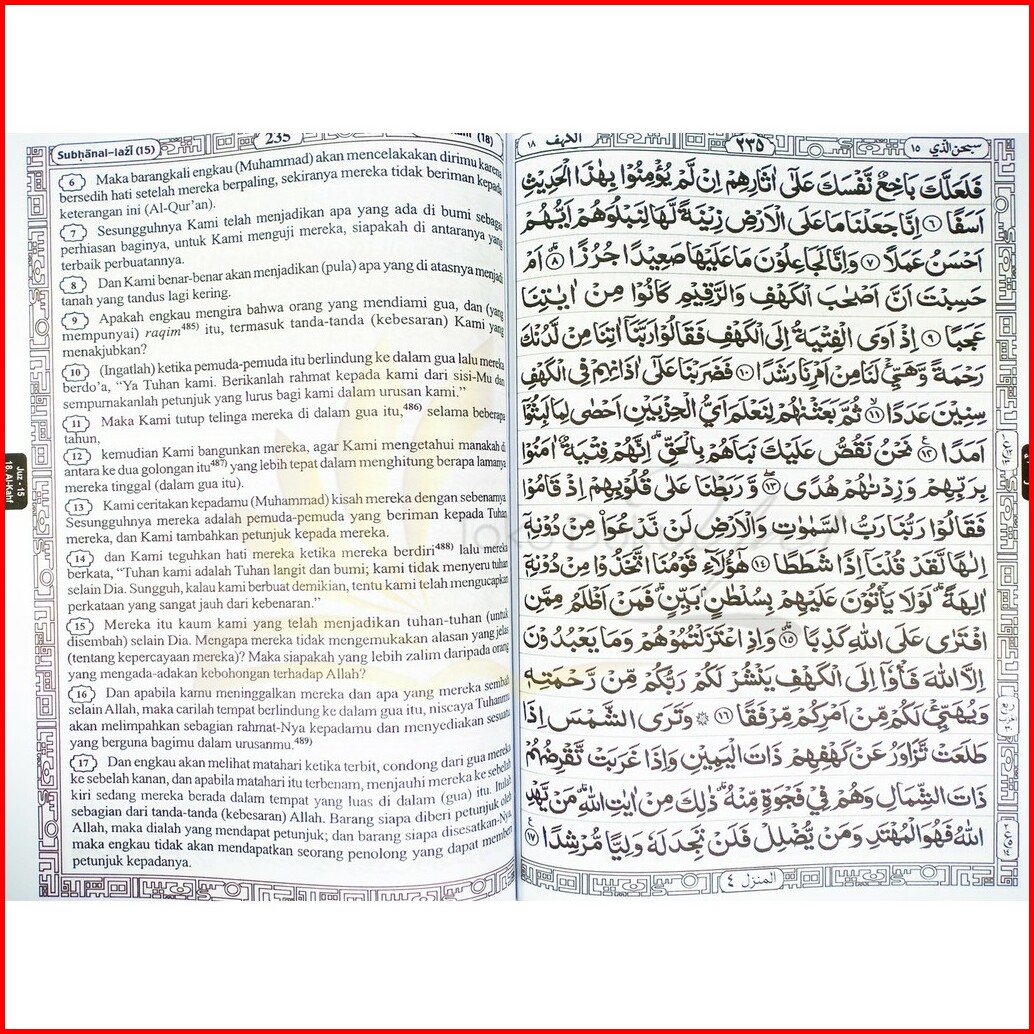 Subḥānal-lażī (15)
235
(18)
6 Maka barangkali engkau (Muhammad) akan mencelakakan dirimu karena
bersedih hati setelah mereka berpaling, sekiranya mereka tidak beriman kepada
keterangan ini (Al-Qur’an).
7 Sesungguhnya Kami telah menjadikan apa yang ada di bumi sebagai
perhiasan baginya, untuk Kami menguji mereka, siapakah di antaranya yang
terbaik perbuatannya.
8 Dan Kami benar-benar akan menjadikan (pula) apa yang di atasnya menjadi
tanah yang tandus lagi kering.
9 Apakah engkau mengira bahwa orang yang mendiami gua, dan (yang
mempunyai) raqim485) itu, termasuk tanda-tanda (kebesaran) Kami yang
menakjubkan?
10 (Ingatlah) ketika pemuda-pemuda itu berlindung ke dalam gua lalu mereka
berdo’a, “Ya Tuhan kami. Berikanlah rahmat kepada kami dari sisi-Mu dan
sempurnakanlah petunjuk yang lurus bagi kami dalam urusan kami.”
11 Maka Kami tutup telinga mereka di dalam gua itu,486) selama beberapa
tahun,
12 kemudian Kami bangunkan mereka, agar Kami mengetahui manakah di
antara ke dua golongan itu487) yang lebih tepat dalam menghitung berapa lamanya
mereka tinggal (dalam gua itu).
13 Kami ceritakan kepadamu (Muhammad) kisah mereka dengan sebenarnya.
Sesungguhnya mereka adalah pemuda-pemuda yang beriman kepada Tuhan
mereka, dan Kami tambahkan petunjuk kepada mereka.
14 dan Kami teguhkan hati mereka ketika mereka berdiri488) lalu mereka
berkata, “Tuhan kami adalah Tuhan langit dan bumi; kami tidak menyeru tuhan
selain Dia. Sungguh, kalau kami berbuat demikian, tentu kami telah mengucapkan
perkataan yang sangat jauh dari kebenaran.”
15 Mereka itu kaum kami yang telah menjadikan tuhan-tuhan (untuk
disembah) selain Dia. Mengapa mereka tidak mengemukakan alasan yang jelas
(tentang kepercayaan mereka)? Maka siapakah yang lebih zalim daripada orang
yang mengada-adakan kebohongan terhadap Allah?
16 Dan apabila kamu meninggalkan mereka dan apa yang mereka sembah
selain Allah, maka carilah tempat berlindung ke dalam gua itu, niscaya Tuhanmu
akan melimpahkan sebagian rahmat-Nya kepadamu dan menyediakan sesuatu
yang berguna bagimu dalam urusanmu.489)
17 Dan engkau akan melihat matahari ketika terbit, condong dari gua mereka
ke sebelah kanan, dan apabila matahari itu terbenam, menjauhi mereka ke sebelah
kiri sedang mereka berada dalam tempat yang luas di dalam (gua) itu. Itulah
sebagian dari tanda-tanda (kebesaran) Allah. Barang siapa diberi petunjuk oleh
Allah, maka dialah yang mendapat petunjuk; dan barang siapa disesatkan-Nya,
maka engkau tidak akan mendapatkan seorang penolong yang dapat memberi
petunjuk kepadanya.
Juz - 15
18. Al-Kahf
سبحن الذي ١٥
٢٣٥
الكهف ١٨
فَلَعَلَّكَ بَاخِعٌ نَّفْسَكَ عَلٰٓى اٰثَارِهِمْ اِنْ لَّمْ يُؤْمِنُوْا بِهٰذَا الْحَدِيْثِ
اَسَفًا ٦ اِنَّا جَعَلْنَا مَا عَلَى الْاَرْضِ زِيْنَةً لَّهَا لِنَبْلُوَهُمْ اَيُّهُمْ
اَحْسَنُ عَمَلًا ٧ وَاِنَّا لَجَاعِلُوْنَ مَا عَلَيْهَا صَعِيْدًا جُرُزًا ٨ اَمْ
حَسِبْتَ اَنَّ اَصْحٰبَ الْكَهْفِ وَالرَّقِيْمِ كَانُوْا مِنْ اٰيٰتِنَا
عَجَبًا ٩ اِذْ اَوَى الْفِتْيَةُ اِلَى الْكَهْفِ فَقَالُوْا رَبَّنَآ اٰتِنَا مِنْ لَّدُنْكَ
رَحْمَةً وَّهَيِّئْ لَنَا مِنْ اَمْرِنَا رَشَدًا ١٠ فَضَرَبْنَا عَلٰٓى اٰذَانِهِمْ فِى الْكَهْفِ
سِنِيْنَ عَدَدًا ١١ ثُمَّ بَعَثْنٰهُمْ لِنَعْلَمَ اَيُّ الْحِزْبَيْنِ اَحْصٰى لِمَا لَبِثُوْٓا
اَمَدًا ١٢ نَحْنُ نَقُصُّ عَلَيْكَ نَبَاَهُمْ بِالْحَقِّ اِنَّهُمْ فِتْيَةٌ اٰمَنُوْا
بِرَبِّهِمْ وَزِدْنٰهُمْ هُدًى ١٣ وَّرَبَطْنَا عَلٰى قُلُوْبِهِمْ اِذْ قَامُوْا
فَقَالُوْا رَبُّنَا رَبُّ السَّمٰوٰتِ وَالْاَرْضِ لَنْ نَّدْعُوَا۟ مِنْ دُوْنِهٖٓ
اِلٰهًا لَّقَدْ قُلْنَآ اِذًا شَطَطًا ١٤ هٰٓؤُلَاۤءِ قَوْمُنَا اتَّخَذُوْا مِنْ دُوْنِهٖٓ
اٰلِهَةً لَوْلَا يَأْتُوْنَ عَلَيْهِمْ بِسُلْطٰنٍۢ بَيِّنٍ فَمَنْ اَظْلَمُ مِمَّنِ
افْتَرٰى عَلَى اللّٰهِ كَذِبًا ١٥ وَاِذِ اعْتَزَلْتُمُوْهُمْ وَمَا يَعْبُدُوْنَ
اِلَّا اللّٰهَ فَأْوٗٓا اِلَى الْكَهْفِ يَنْشُرْ لَكُمْ رَبُّكُمْ مِّنْ رَّحْمَتِهٖ
وَيُهَيِّئْ لَكُمْ مِّنْ اَمْرِكُمْ مِّرْفَقًا ١٦ وَتَرَى الشَّمْسَ اِذَا
طَلَعَتْ تَّزٰوَرُ عَنْ كَهْفِهِمْ ذَاتَ الْيَمِيْنِ وَاِذَا غَرَبَتْ تَّقْرِضُهُمْ
ذَاتَ الشِّمَالِ وَهُمْ فِيْ فَجْوَةٍ مِّنْهُ ذٰلِكَ مِنْ اٰيٰتِ اللّٰهِ مَنْ يَّهْدِ
اللّٰهُ فَهُوَ الْمُهْتَدِ وَمَنْ يُّضْلِلْ فَلَنْ تَجِدَ لَهٗ وَلِيًّا مُّرْشِدًا ١٧
المنزل ٤